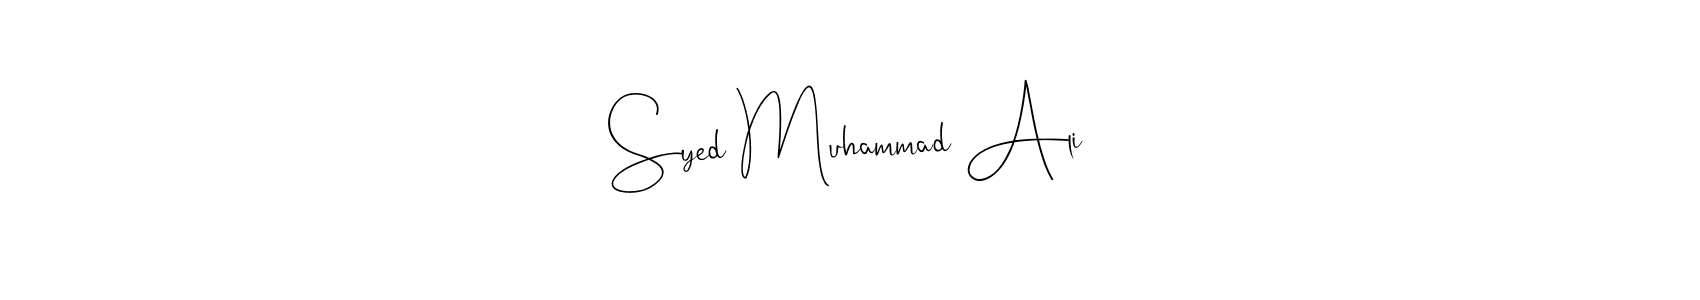 Syed Muhammad Ali